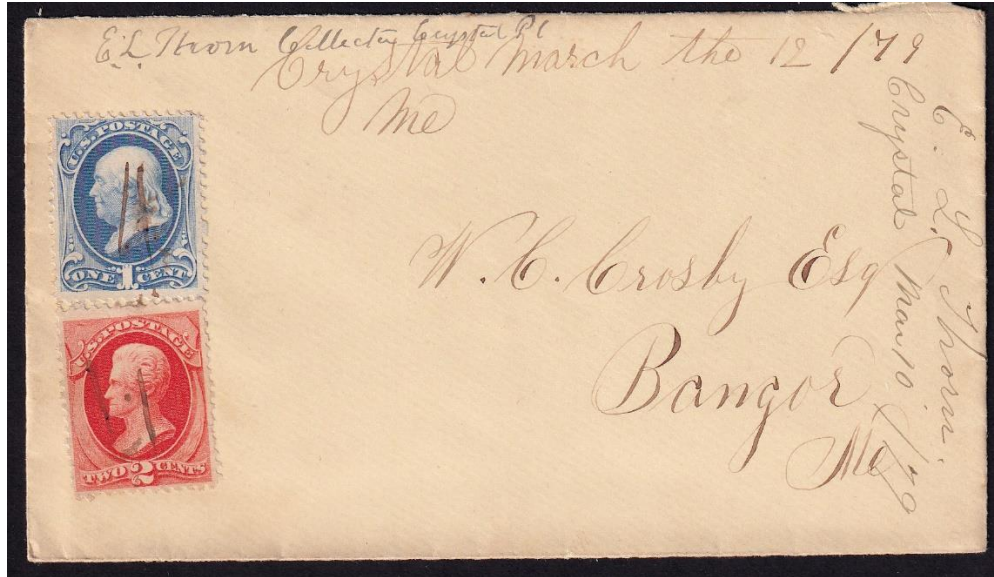 E. L. Thorn Collector Crystal Pl
Crystal March the 12 /79
Me
U.S. POSTAGE
ONE 1 CENT
U.S. POSTAGE
TWO 2 CENTS
W. C. Crosby Esq
Bangor
Me
E. L. Thorn.
Crystal Mar 10 /79